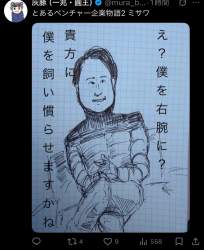 灰豚 (一兆・園王) @mura_b… · 1時間
とあるベンチャー企業物語2 ミサワ
え？僕を右腕に？
貴方に
僕を飼い慣らせますかね
4
9
558